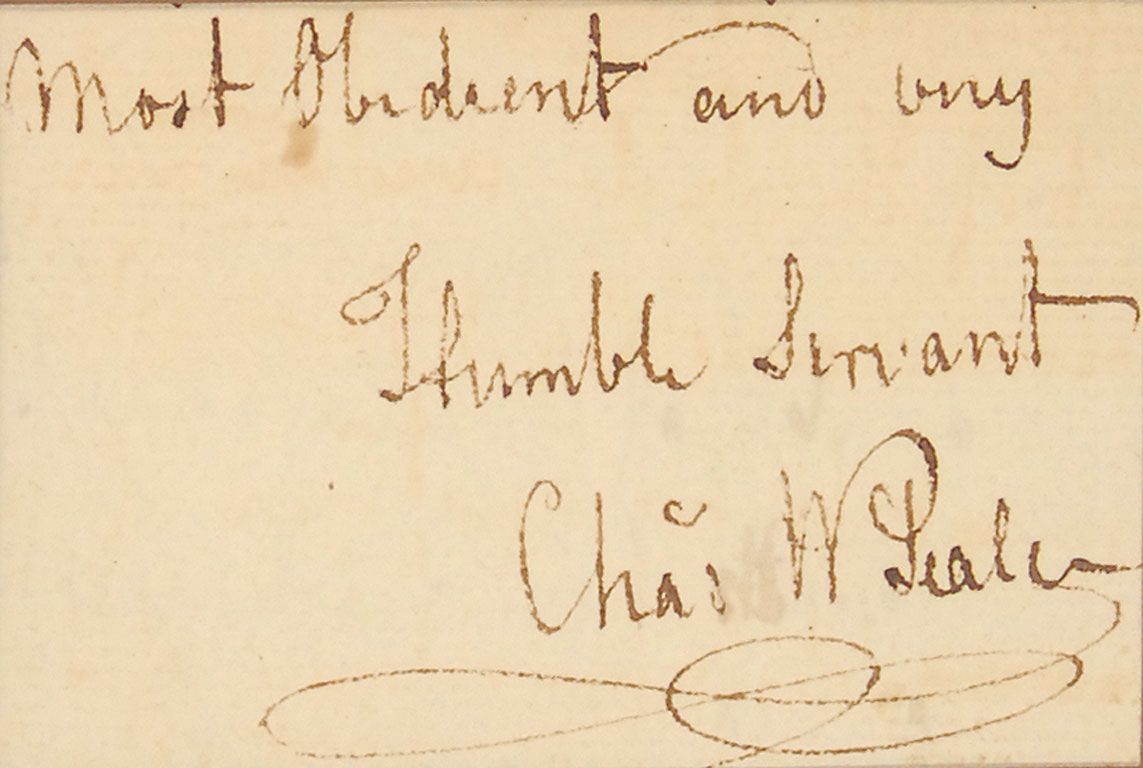 Most Obedient and very
Humble Servant
Chas W Peale